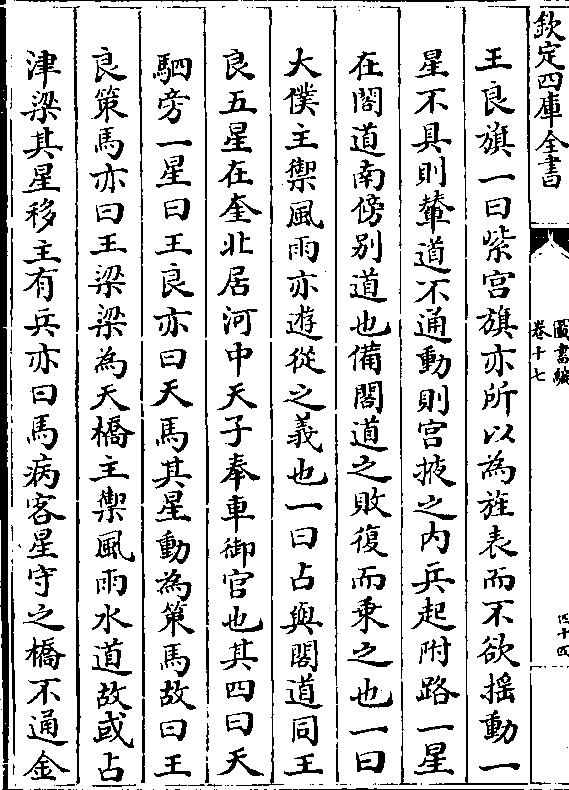 欽定四庫全書
圖書編
卷十七
四十四
王良旗一曰紫宫旗亦所以為旌表而不欲揺動一
星不具則輦道不通動則宫掖之内兵起附路一星
在閣道南傍别道也備閣道之敗復而乘之也一曰
大僕主禦風雨亦遊從之義也一曰占與閣道同王
良五星在奎北居河中天子奉車御官也其四曰天
駟旁一星曰王良亦曰天馬其星動為策馬故曰王
良策馬亦曰王梁梁為天橋主禦風雨水道故或占
津梁其星移主有兵亦曰馬病客星守之橋不通金